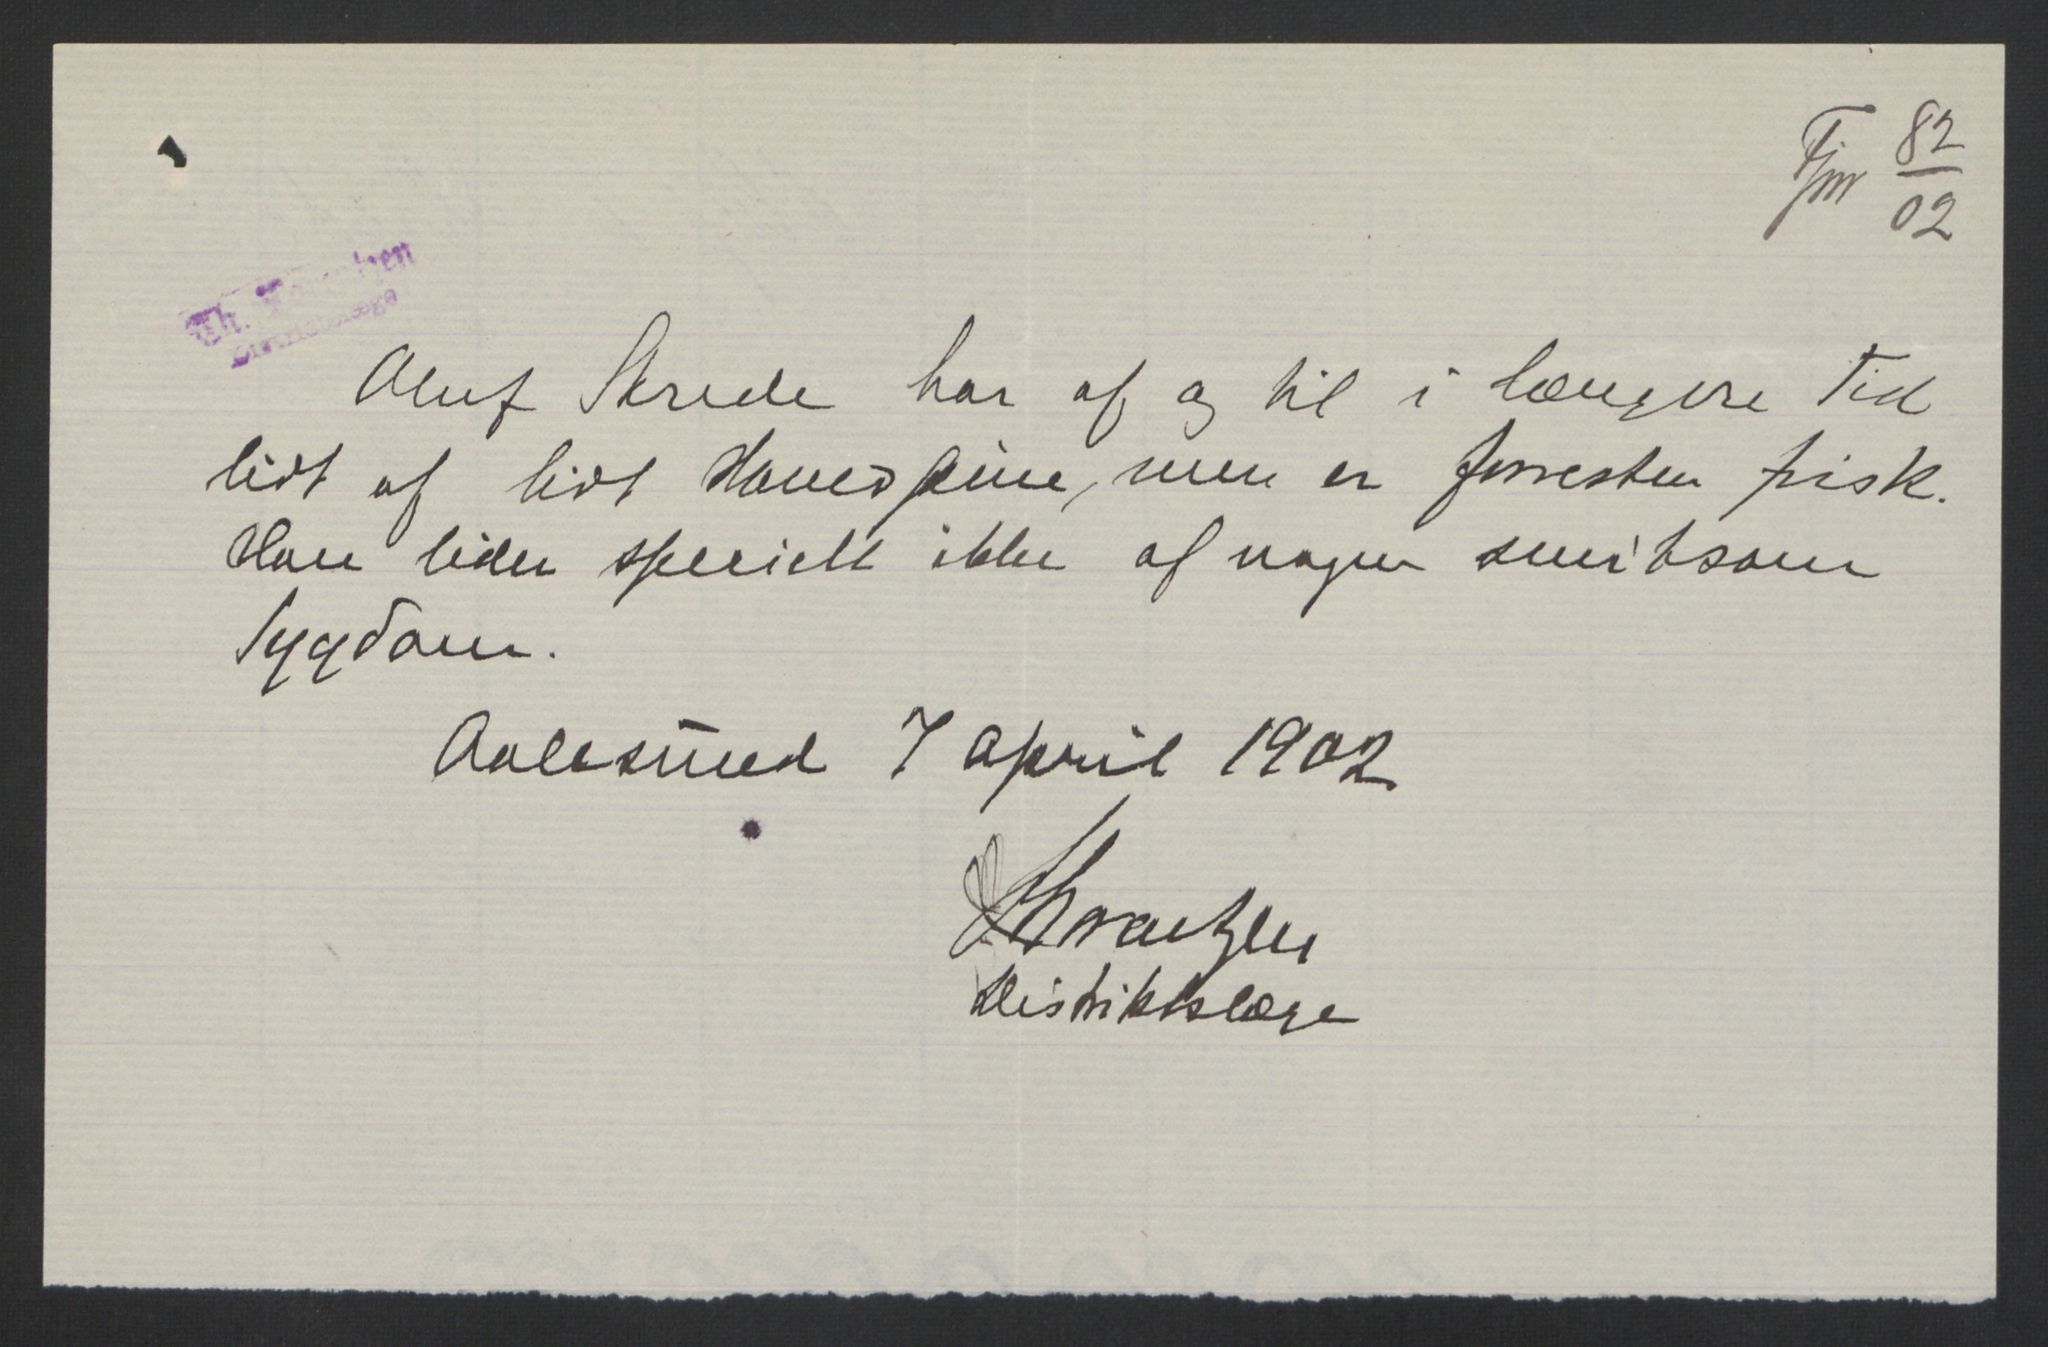 Fjm 82
02
Th.
Distriktslæge
Oluf Skrede har af og til i længere Tid
lidt af lidt Hovedpine, men er forresten frisk.
Han lider specielt ikke af nogen smitsom
Sygdom.
Aalesund 7 april 1902
Distriktslæge